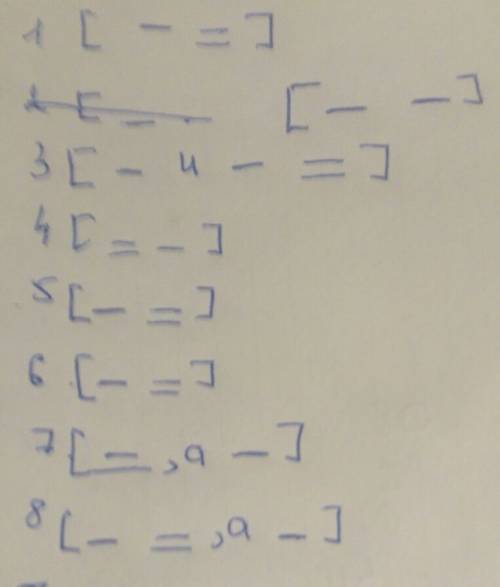 1 [ – = ]
2 [ – . [ – – ]
3 [ – и – = ]
4 [ = – ]
5 [ – = ]
6 [ – = ]
7 [ – , а – ]
8 [ – = , а – ]